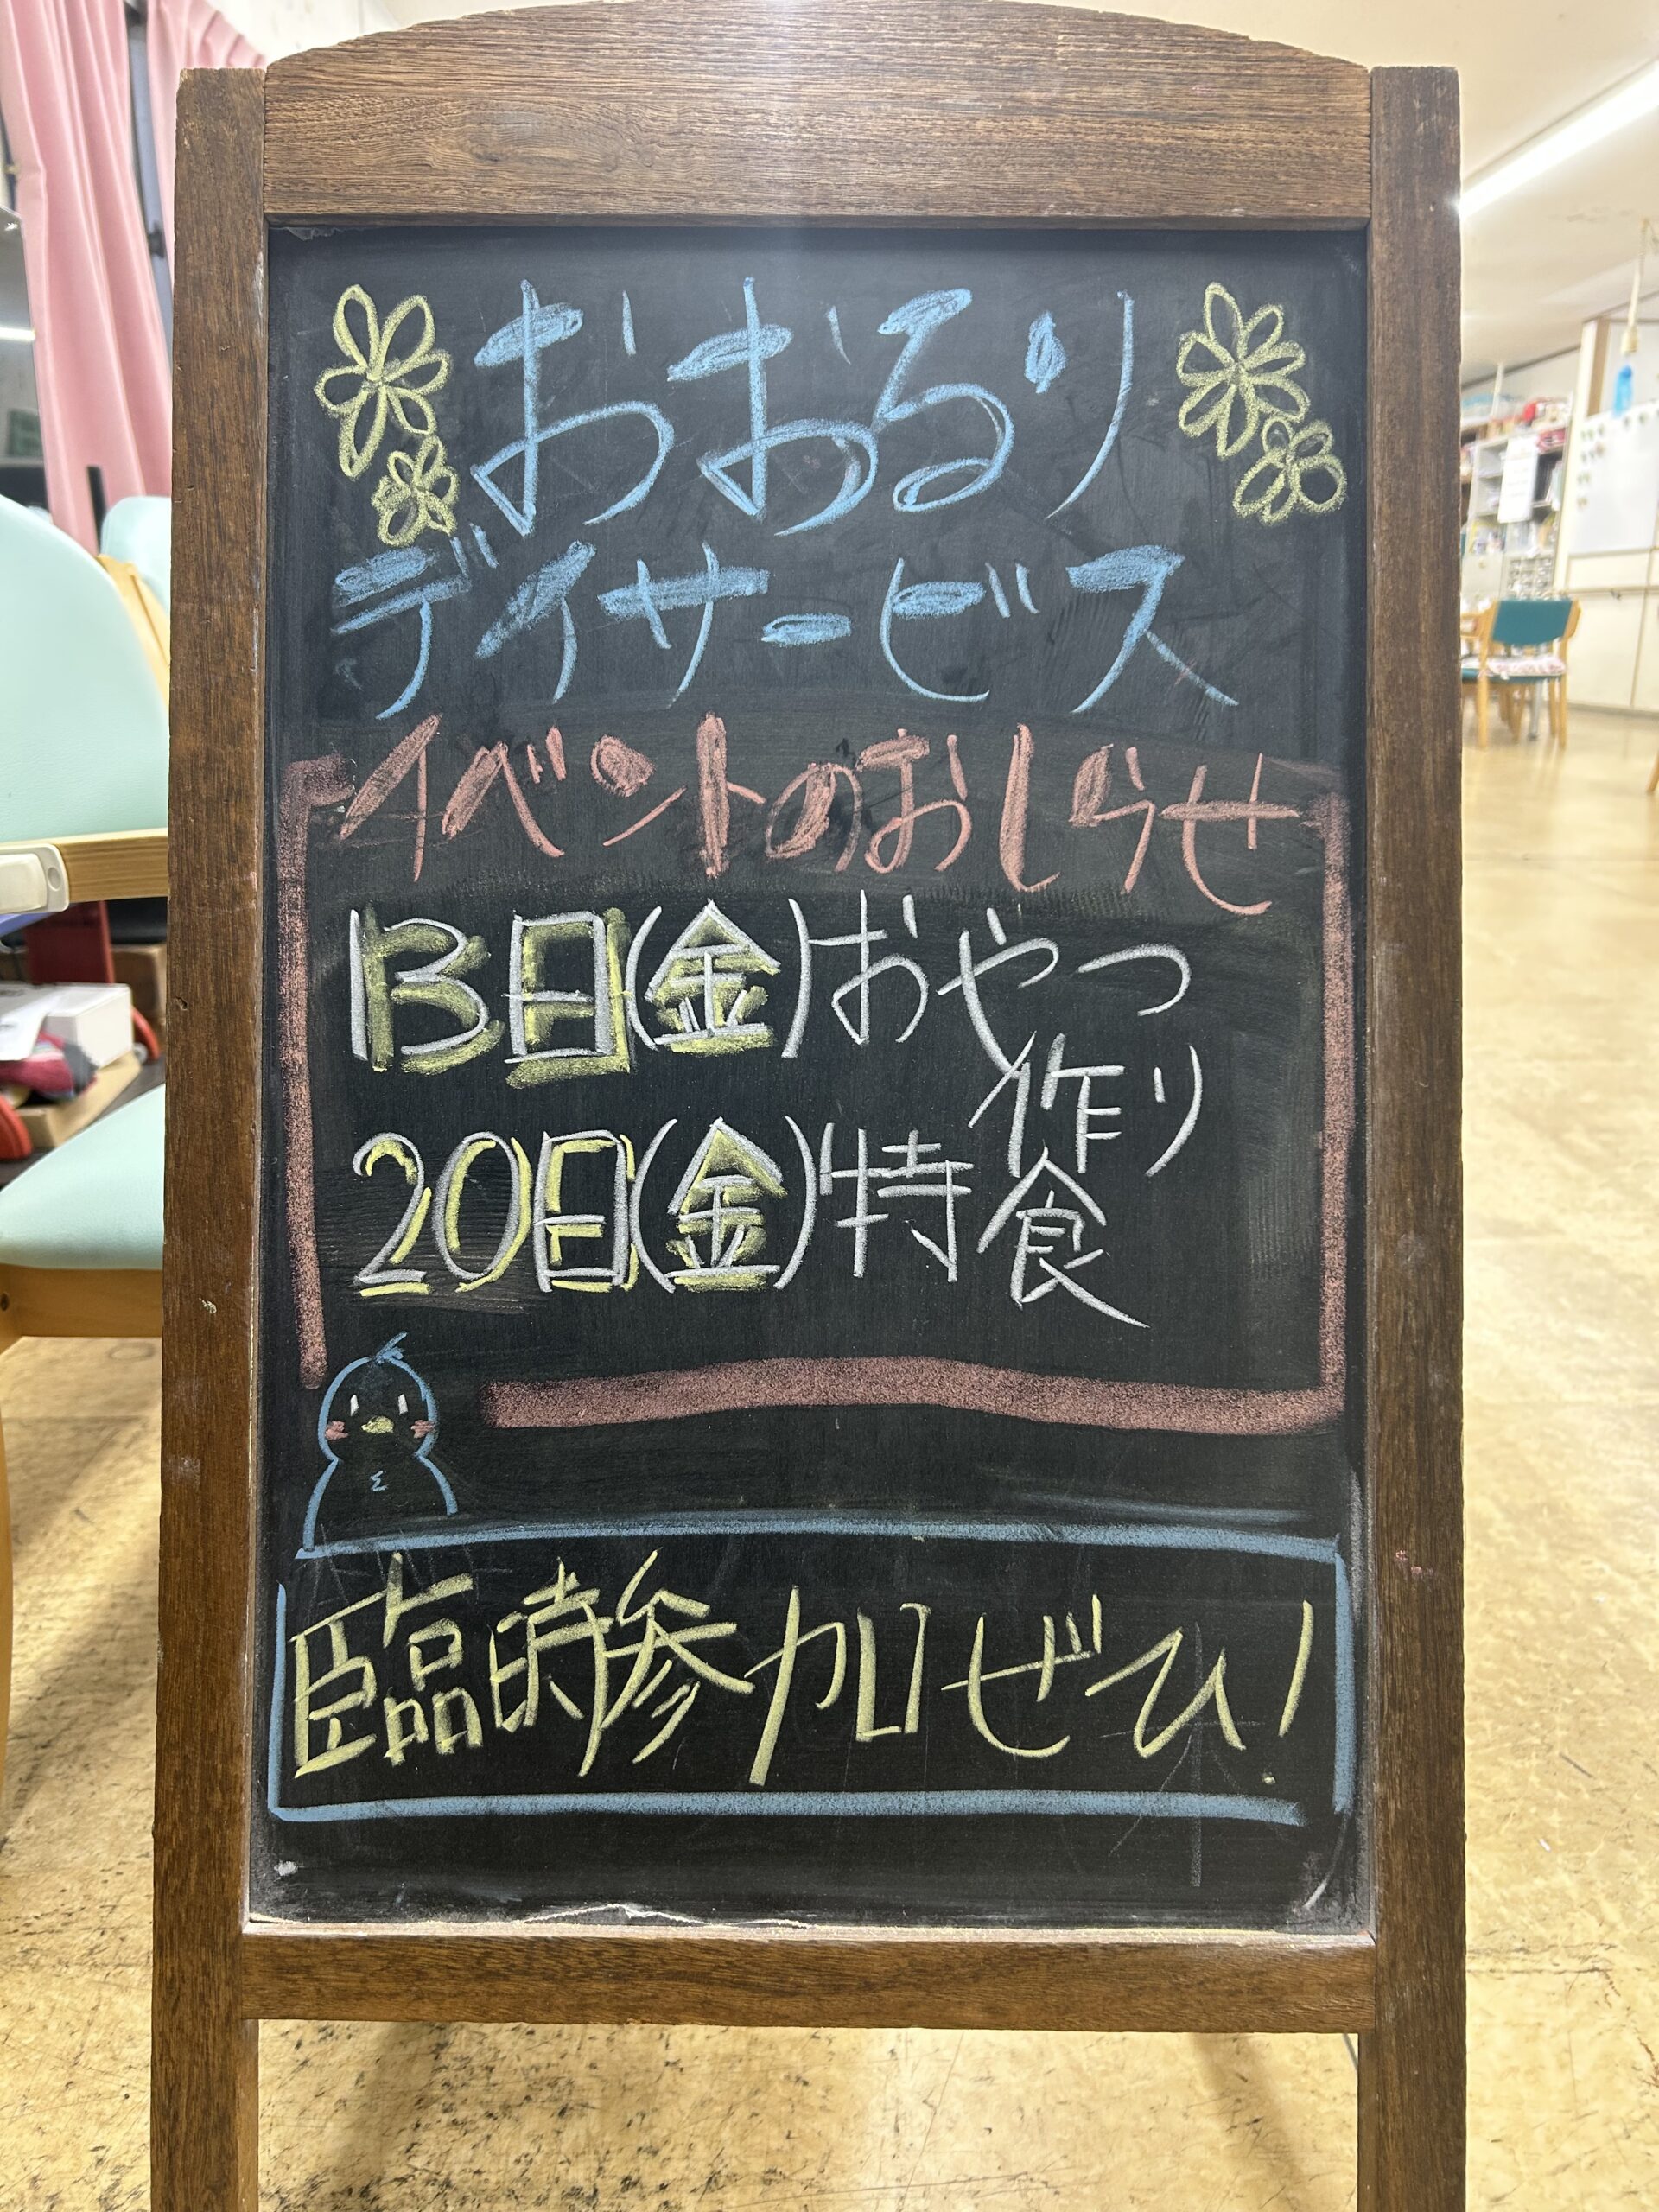 おおるり
デイサービス
イベントのおしらせ
13日(金)おやつ
作り
20日(金)特食
臨時参加ぜひ!